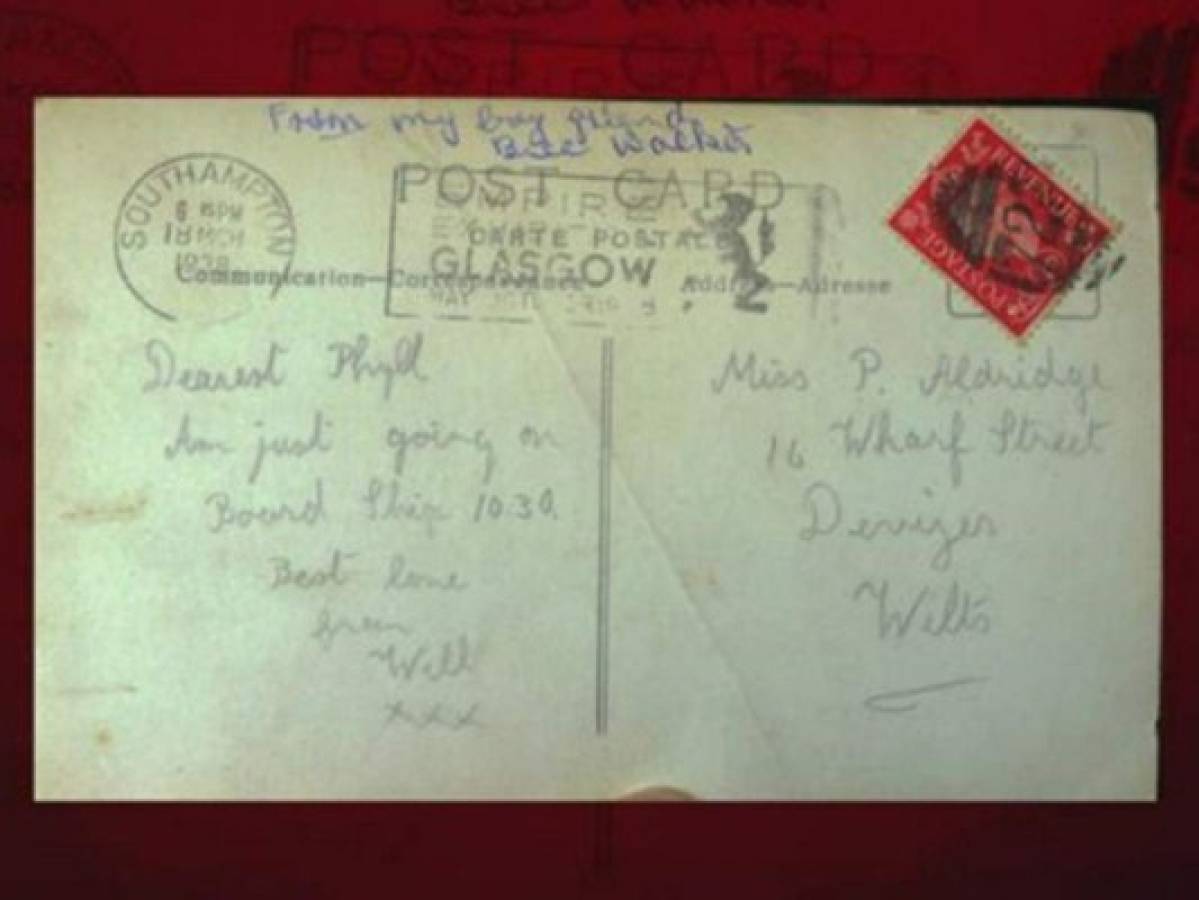 From my boy friend
Bill Walker
POST CARD
CARTE POSTALE
SOUTHAMPTON
6 15PM
18 MCH
1938
EMPIRE
GLASGOW
MAY
Communication—Correspondance
Address—Adresse
REVENUE
POSTAGE
Dearest Phyll
Am just going on
Board Ship 10.30.
Best love
from
Will
xxx
Miss P. Aldridge
16 Wharf Street
Devizes
Wilts